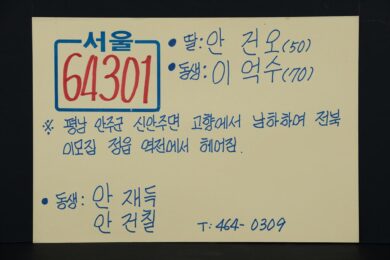 서울
64301
• 딸: 안 건오(50)
• 동생: 이 억수(70)
※ 평남 안주군 신안주면 고향에서 남하하여 전북
이모집 정읍 역전에서 헤어짐.
• 동생: 안 재득
안 건칠
T: 464-0309